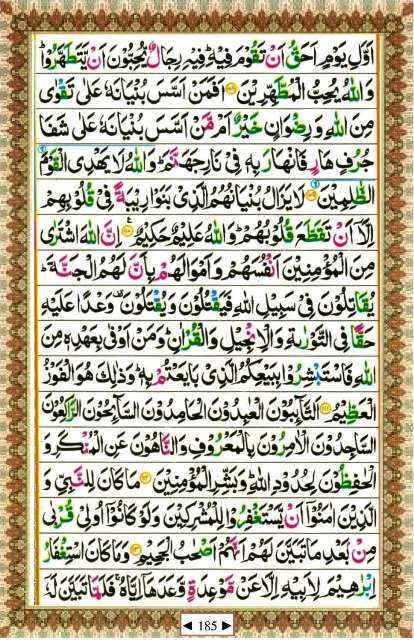 اَوَّلِ يَوْمٍ اَحَقُّ اَنْ تَقُوْمَ فِيْهِ ؕ فِيْهِ رِجَالٌ يُّحِبُّوْنَ اَنْ يَّتَطَهَّرُوْا ؕ
وَاللّٰهُ يُحِبُّ الْمُطَّهِّرِيْنَ ﴿۱۰۸﴾ اَفَمَنْ اَسَّسَ بُنْيَانَهٗ عَلٰى تَقْوٰى
مِنَ اللّٰهِ وَرِضْوَانٍ خَيْرٌ اَمْ مَّنْ اَسَّسَ بُنْيَانَهٗ عَلٰى شَفَا
جُرُفٍ هَارٍ فَانْهَارَ بِهٖ فِيْ نَارِ جَهَنَّمَ ؕ وَاللّٰهُ لَا يَهْدِى الْقَوْمَ
الظّٰلِمِيْنَ ﴿۱۰۹﴾ لَا يَزَالُ بُنْيَانُهُمُ الَّذِيْ بَنَوْا رِيْبَةً فِيْ قُلُوْبِهِمْ
اِلَّاۤ اَنْ تَقَطَّعَ قُلُوْبُهُمْ ؕ وَاللّٰهُ عَلِيْمٌ حَكِيْمٌ ﴿۱۱۰﴾ اِنَّ اللّٰهَ اشْتَرٰى
مِنَ الْمُؤْمِنِيْنَ اَنْفُسَهُمْ وَاَمْوَالَهُمْ بِاَنَّ لَهُمُ الْجَنَّةَ ؕ
يُقَاتِلُوْنَ فِيْ سَبِيْلِ اللّٰهِ فَيَقْتُلُوْنَ وَيُقْتَلُوْنَ ۫ وَعْدًا عَلَيْهِ
حَقًّا فِى التَّوْرٰىةِ وَالْاِنْجِيْلِ وَالْقُرْاٰنِ ؕ وَمَنْ اَوْفٰى بِعَهْدِهٖ مِنَ
اللّٰهِ فَاسْتَبْشِرُوْا بِبَيْعِكُمُ الَّذِيْ بَايَعْتُمْ بِهٖ ؕ وَذٰلِكَ هُوَ الْفَوْزُ
الْعَظِيْمُ ﴿۱۱۱﴾ اَلتَّآئِبُوْنَ الْعٰبِدُوْنَ الْحَامِدُوْنَ السَّآئِحُوْنَ الرّٰكِعُوْنَ
السَّاجِدُوْنَ الْاٰمِرُوْنَ بِالْمَعْرُوْفِ وَالنَّاهُوْنَ عَنِ الْمُنْكَرِ وَ
الْحٰفِظُوْنَ لِحُدُوْدِ اللّٰهِ ؕ وَبَشِّرِ الْمُؤْمِنِيْنَ ﴿۱۱۲﴾ مَا كَانَ لِلنَّبِيِّ وَ
الَّذِيْنَ اٰمَنُوْۤا اَنْ يَّسْتَغْفِرُوْا لِلْمُشْرِكِيْنَ وَلَوْ كَانُوْۤا اُولِيْ قُرْبٰى
مِنْۢ بَعْدِ مَا تَبَيَّنَ لَهُمْ اَنَّهُمْ اَصْحٰبُ الْجَحِيْمِ ﴿۱۱۳﴾ وَمَا كَانَ اسْتِغْفَارُ
اِبْرٰهِيْمَ لِاَبِيْهِ اِلَّا عَنْ مَّوْعِدَةٍ وَّعَدَهَاۤ اِيَّاهُ ۚ فَلَمَّا تَبَيَّنَ لَهٗۤ
◄ 185 ►